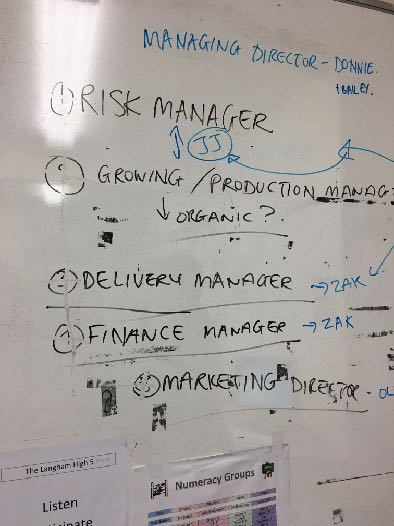 MANAGING DIRECTOR - DONNIE.
+ BAILEY.
RISK MANAGER
JJ
GROWING / PRODUCTION MANAG
↓ ORGANIC?
DELIVERY MANAGER → ZAK
FINANCE MANAGER → ZAK
MARKETING DIRECTOR - OL
The Langham High
Listen
Numeracy Groups